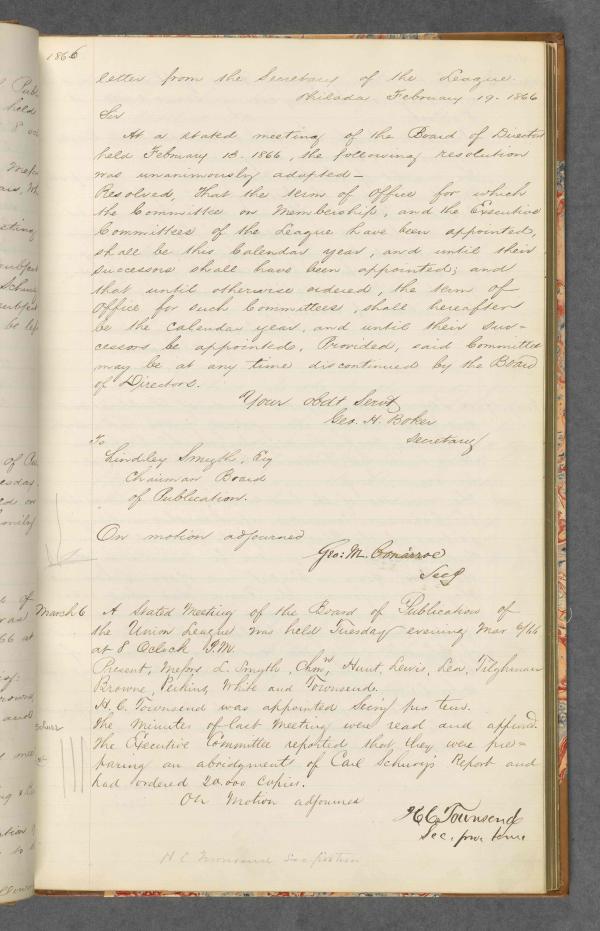 1866
letter from the Secretary of the League.
Philada February 19. 1866
Sir
At a stated meeting of the Board of Directors
held February 13. 1866, the following resolution
was unanimously adopted—
Resolved, That the term of Office for which
the Committee on Membership, and the Executive
Committees of the League have been appointed,
shall be this Calendar year, and until their
successors shall have been appointed; and
that until otherwise ordered, the term of
Office for such Committees, shall hereafter
be the Calendar year, and until their suc=
cessors be appointed, Provided, said Committees
may be at any time discontinued by the Board
of Directors.
Your obdt Servt
Geo. H. Boker
Secretary
To
Lindley Smyth, Esq
Chairman Board
of Publication.
On motion adjourned
Geo: M. Conarroe
Secy
March 6
A Stated Meeting of the Board of Publication of
the Union League was held Tuesday evening Mar 6/66
at 8 Oclock P.M.
Present, Messrs L. Smyth, Chmn, Hunt, Lewis, Lea, Tilghman
Browne, Perkins, White and Townsend.
H. C. Townsend was appointed Secy pro tem.
The Minutes of last Meeting were read and appvd.
Schurz
The Executive Committee reported that they were pre=
paring an abridgment of Carl Schurz's Report and
had ordered 20.000 copies.
On Motion adjourned
H C Townsend
Sec. pro tem
H C Townsend Sec pro tem